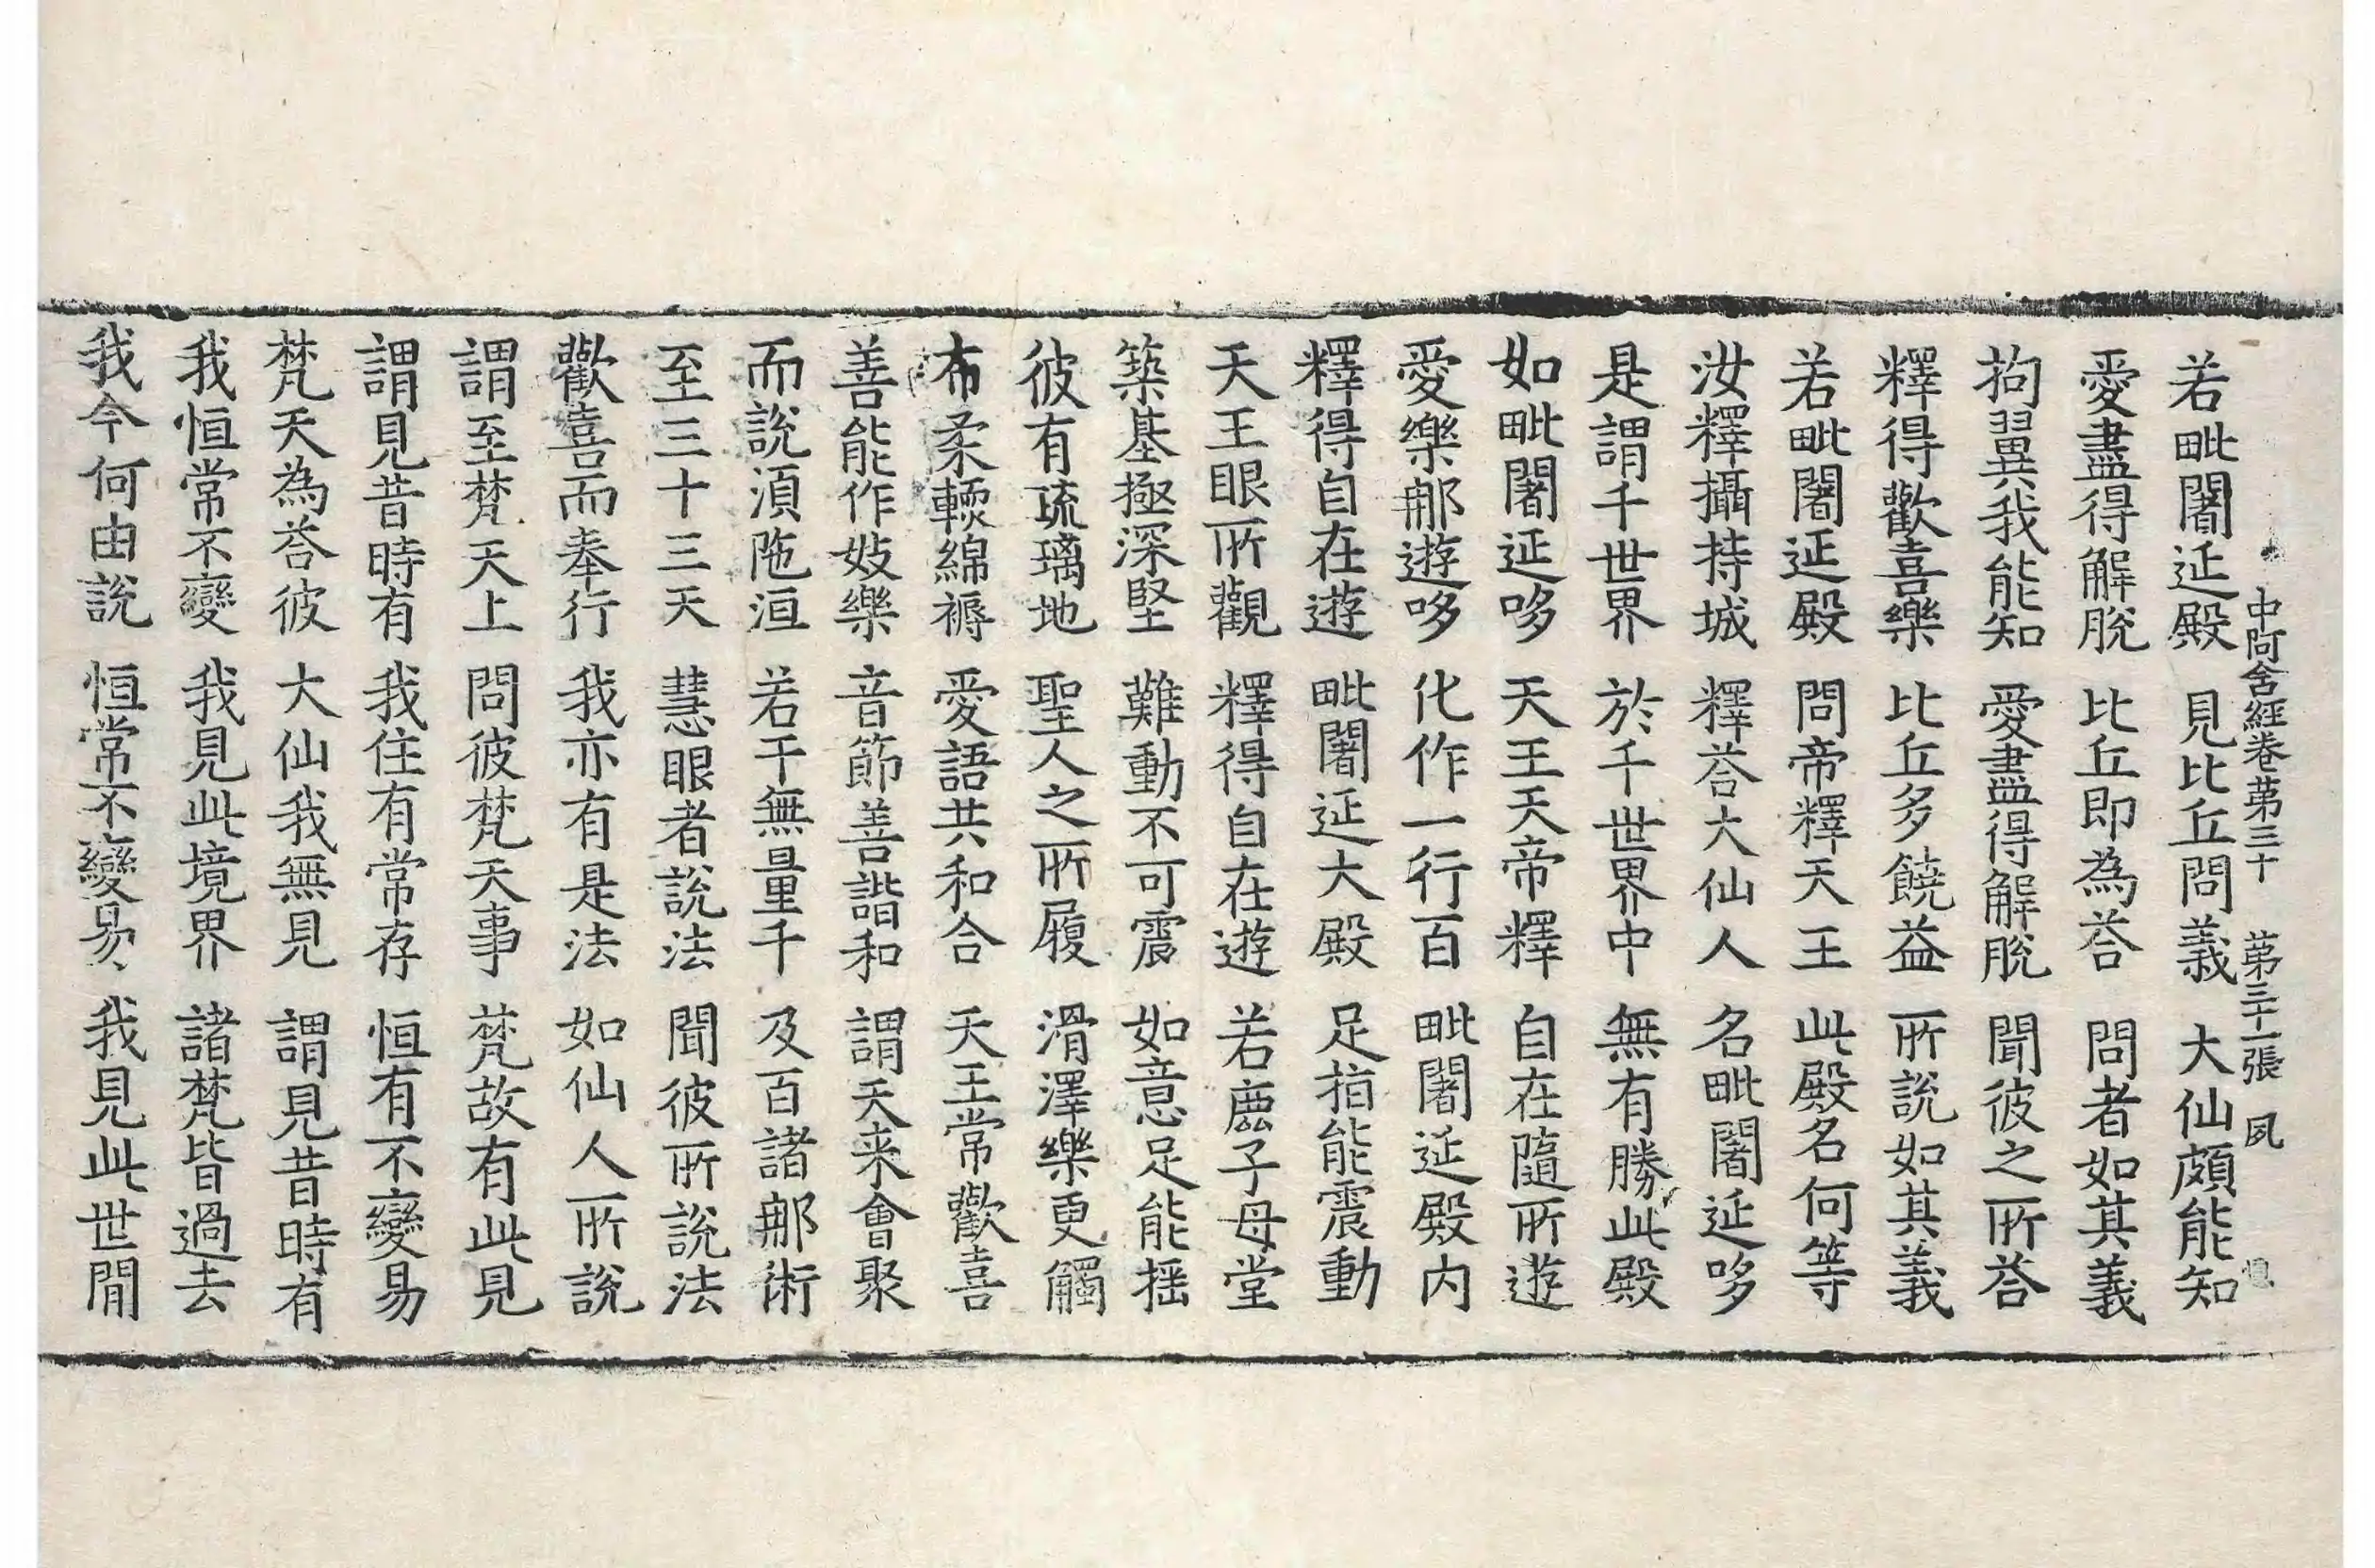 中阿含經卷第三十 第三十一張 夙
若毗闍延殿 見比丘問義 大仙頗能知
愛盡得解脫 比丘即為荅 問者如其義
拘翼我能知 愛盡得解脫 聞彼之所荅
釋得歡喜樂 比丘多饒益 所說如其義
若毗闍延殿 問帝釋天王 此殿名何等
汝釋攝持城 釋荅大仙人 名毗闍延哆
是謂千世界 於千世界中 無有勝此殿
如毗闍延哆 天王天帝釋 自在隨所遊
愛樂郍遊哆 化作一行百 毗闍延殿內
釋得自在遊 毗闍延大殿 足指能震動
天王眼所觀 釋得自在遊 若鹿子母堂
築基極深堅 難動不可震 如意足能搖
彼有琉璃地 聖人之所履 滑澤樂更觸
布柔輭綿褥 愛語共和合 天王常歡喜
善能作妓樂 音節善諧和 謂天来會聚
而說湏陁洹 若干無量千 及百諸郍術
至三十三天 慧眼者說法 聞彼所說法
歡喜而奉行 我亦有是法 如仙人所說
謂至梵天上 問彼梵天事 梵故有此見
謂見昔時有 我住有常存 恒有不變易
梵天為荅彼 大仙我無見 謂見昔時有
我恒常不變 我見此境界 諸梵皆過去
我今何由說 恒常不變易 我見此世閒